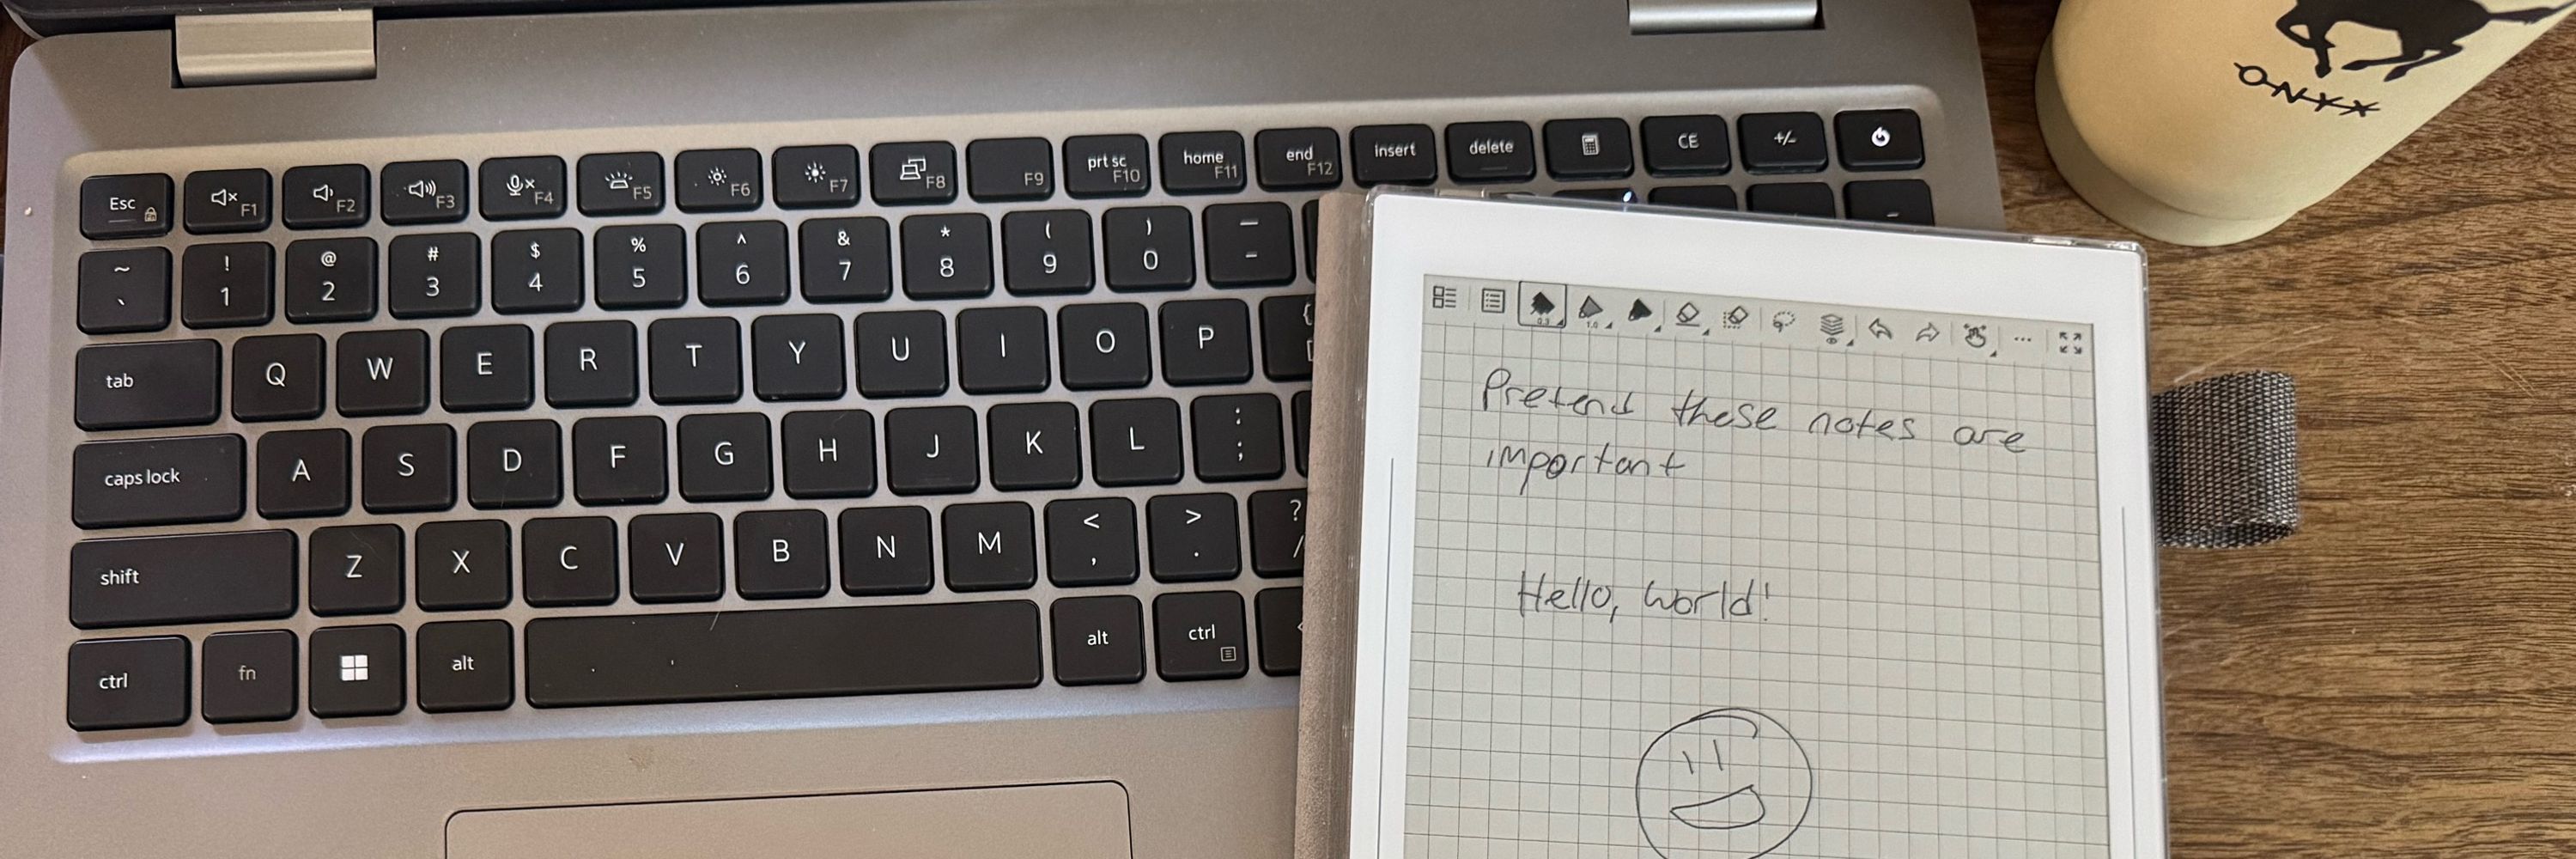 Esc F1 F2 F3 F4 F5 F6 F7 F8 F9 prt sc F10 home F11 end F12 insert delete CE +/-
~ ` ! 1 @ 2 # 3 $ 4 % 5 ^ 6 & 7 * 8 ( 9 ) 0 — -
tab Q W E R T Y U I O P { [
caps lock A S D F G H J K L : ;
shift Z X C V B N M < , > . ? /
ctrl fn alt alt ctrl
ONYX
0.3 1.0
Pretend these notes are
important
Hello, world!